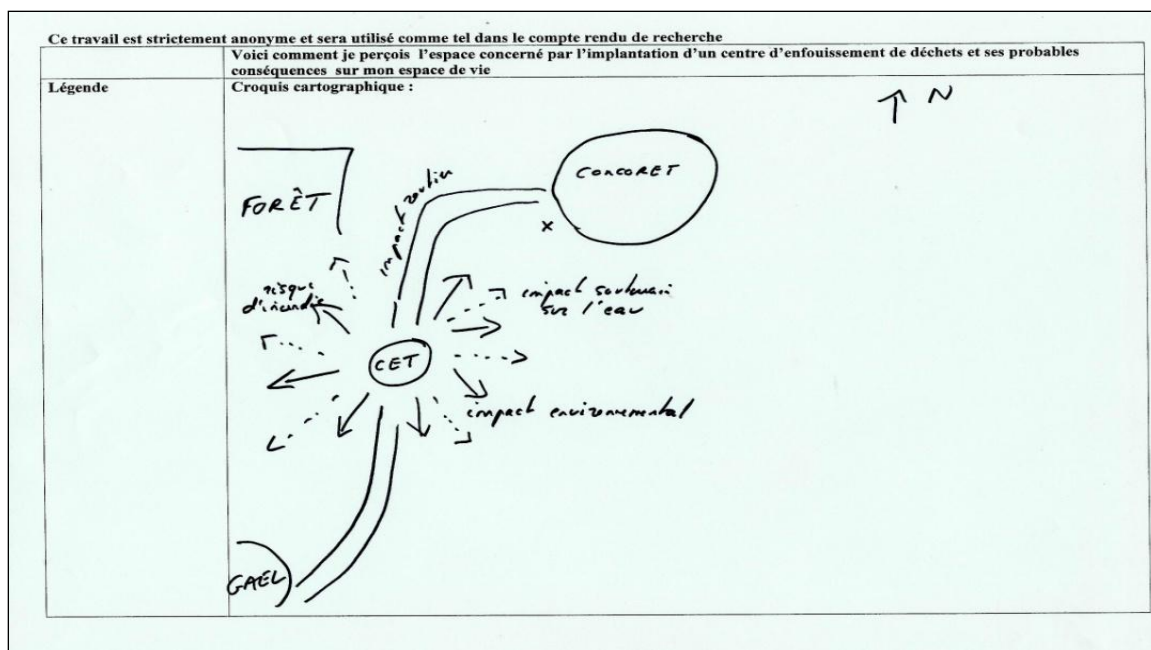 Ce travail est strictement anonyme et sera utilisé comme tel dans le compte rendu de recherche
Voici comment je perçois l'espace concerné par l'implantation d'un centre d'enfouissement de déchets et ses probables
conséquences sur mon espace de vie
Légende
Croquis cartographique :
N
CONCORET
FORÊT
impact routier
risque
d'incendie
impact souterrain
sur l'eau
CET
impact environnemental
GAEL